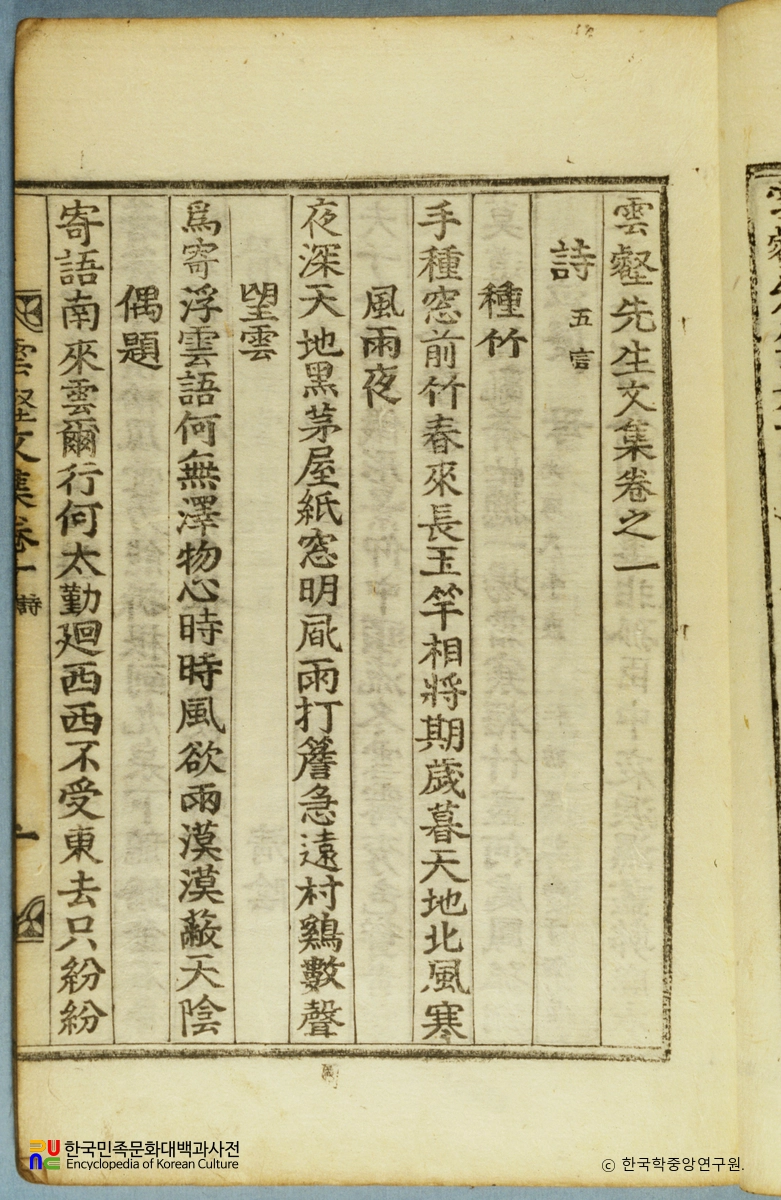 雲壑先生文集卷之一
詩 五言
種竹
手種窓前竹春來長玉竿相將期歲暮天地北風寒
風雨夜
夜深天地黑茅屋紙窓明風雨打簷急遠村鷄數聲
望雲
爲寄浮雲語何無澤物心時時風欲雨漠漠蔽天陰
偶題
寄語南來雲爾行何太勤廻西西不受東去只紛紛
雲壑文集卷一 詩 一
한국민족문화대백과사전
Encyclopedia of Korean Culture
ⓒ 한국학중앙연구원.